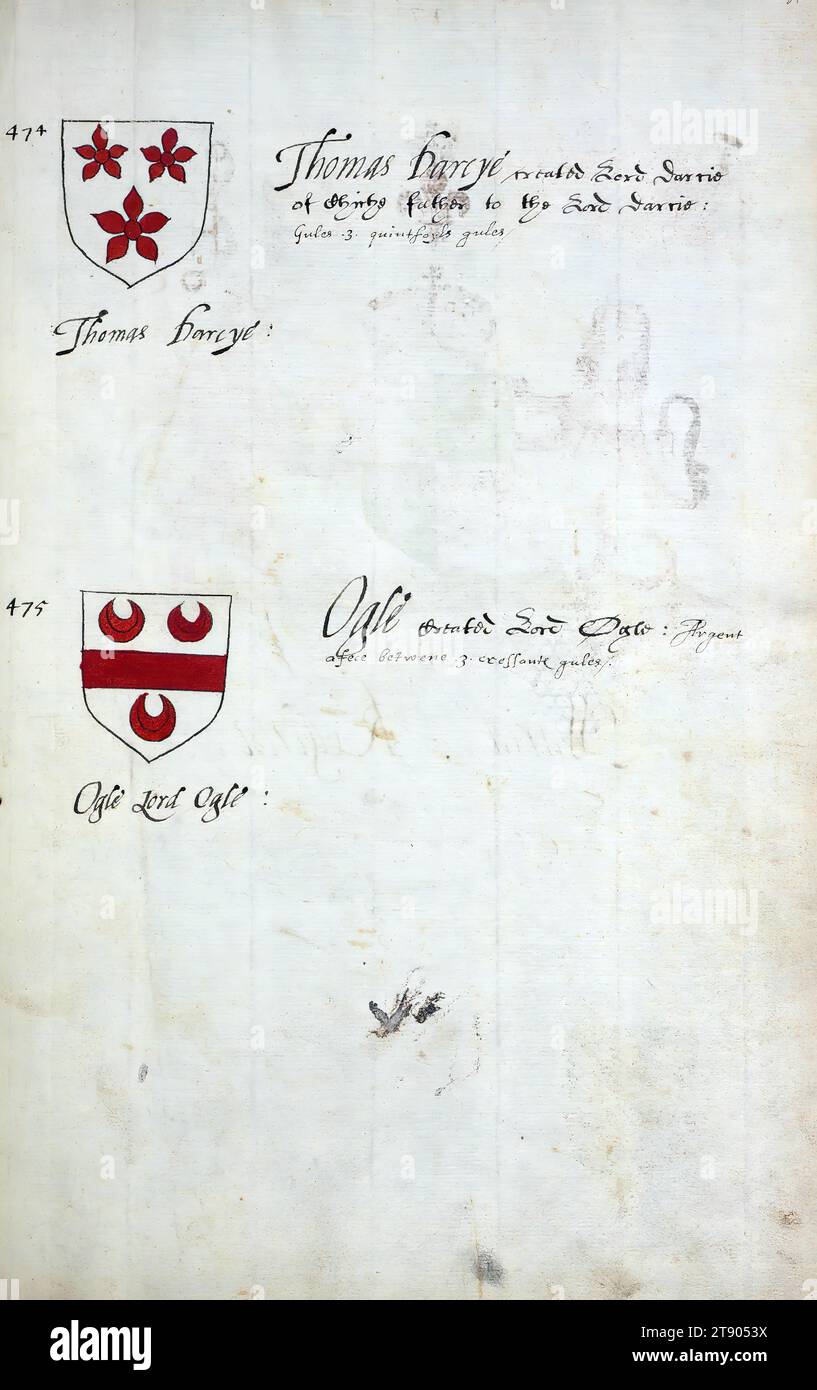 474
Thomas Darcye created Lord Darcie
of Chiche father to the Lord Darcie:
Gules .3. quintfoyls gules/
Thomas Darcye:
475
Ogle Created Lord Ogle: Argent
a fece betwene .3. cressants gules/.
Ogle Lord Ogle:
alamy
alamy
alamy
alamy
Image ID: 2T9053X
www.alamy.com